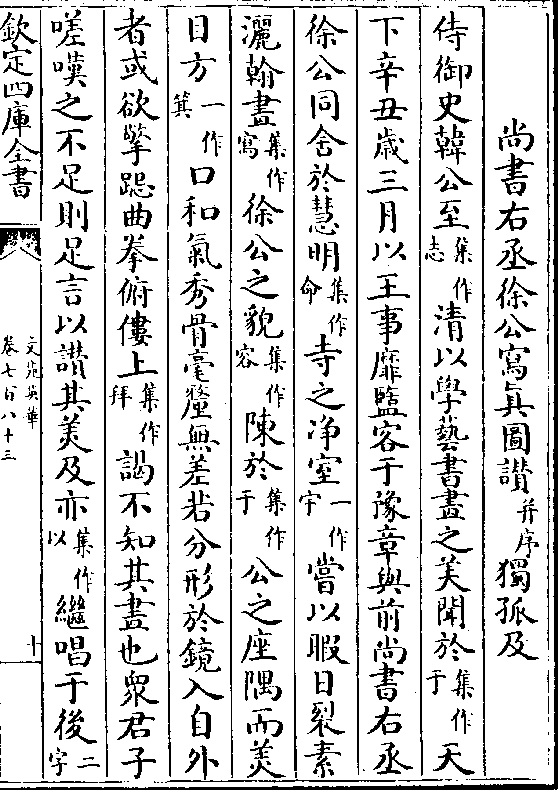 尚書右丞徐公寫真圖讃并序獨孤及
侍御史韓公至集作志清以學藝書畫之美聞於集作于天
下辛丑歲三月以王事靡盬客于豫章與前尚書右丞
徐公同舍於慧明集作命寺之净室一作宇嘗以暇日裂素
灑翰畫集作寫徐公之貌集作容陳於集作于公之座隅而美
日方一作箕口和氣秀骨毫釐無差若分形於鏡入自外
者或欲擎跽曲拳俯僂上集作拜謁不知其畫也衆君子
嗟嘆之不足則足言以讃其美及亦集作以繼唱于後二字
欽定四庫全書
文苑英華
卷七百八十三
十